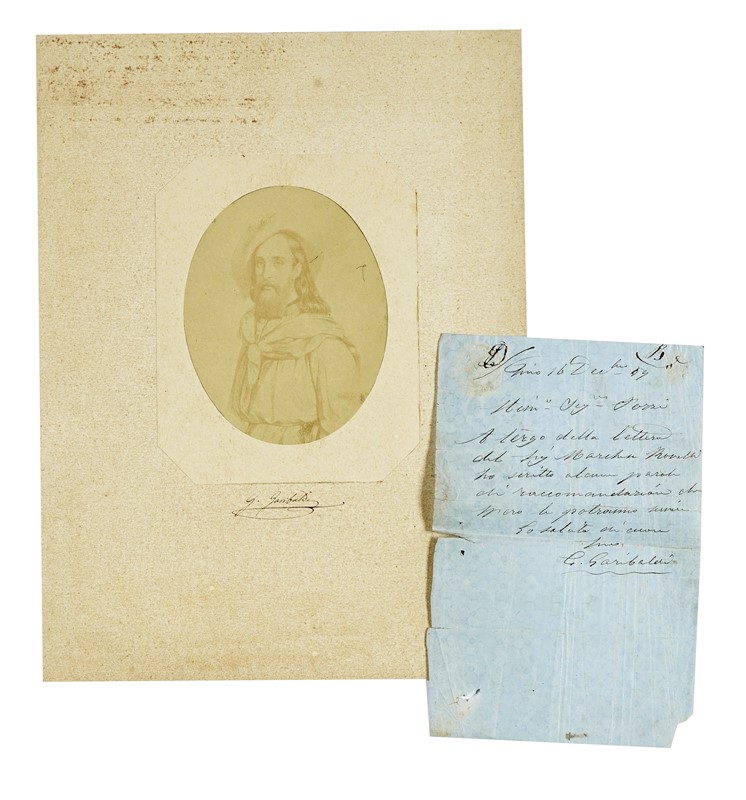 G. Garibaldi
16 Decbre 59
A tergo della lettera
del Sig Marchese
ho scritto alcune parole
di raccomandazione che
spero le potranno
La saluto di cuore
suo
G. Garibaldi